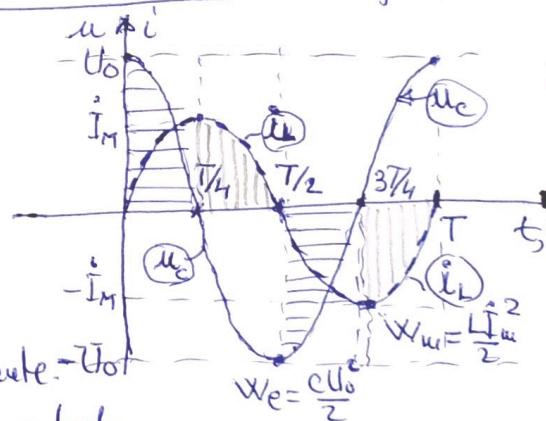 u i
U₀
İ_M
i_L
u_c
T/4
T/2
3T/4
T
t,
u_c
i_L
-İ_M
W_m = Lİ_m²/2
-U₀
W_e = cU₀²/2